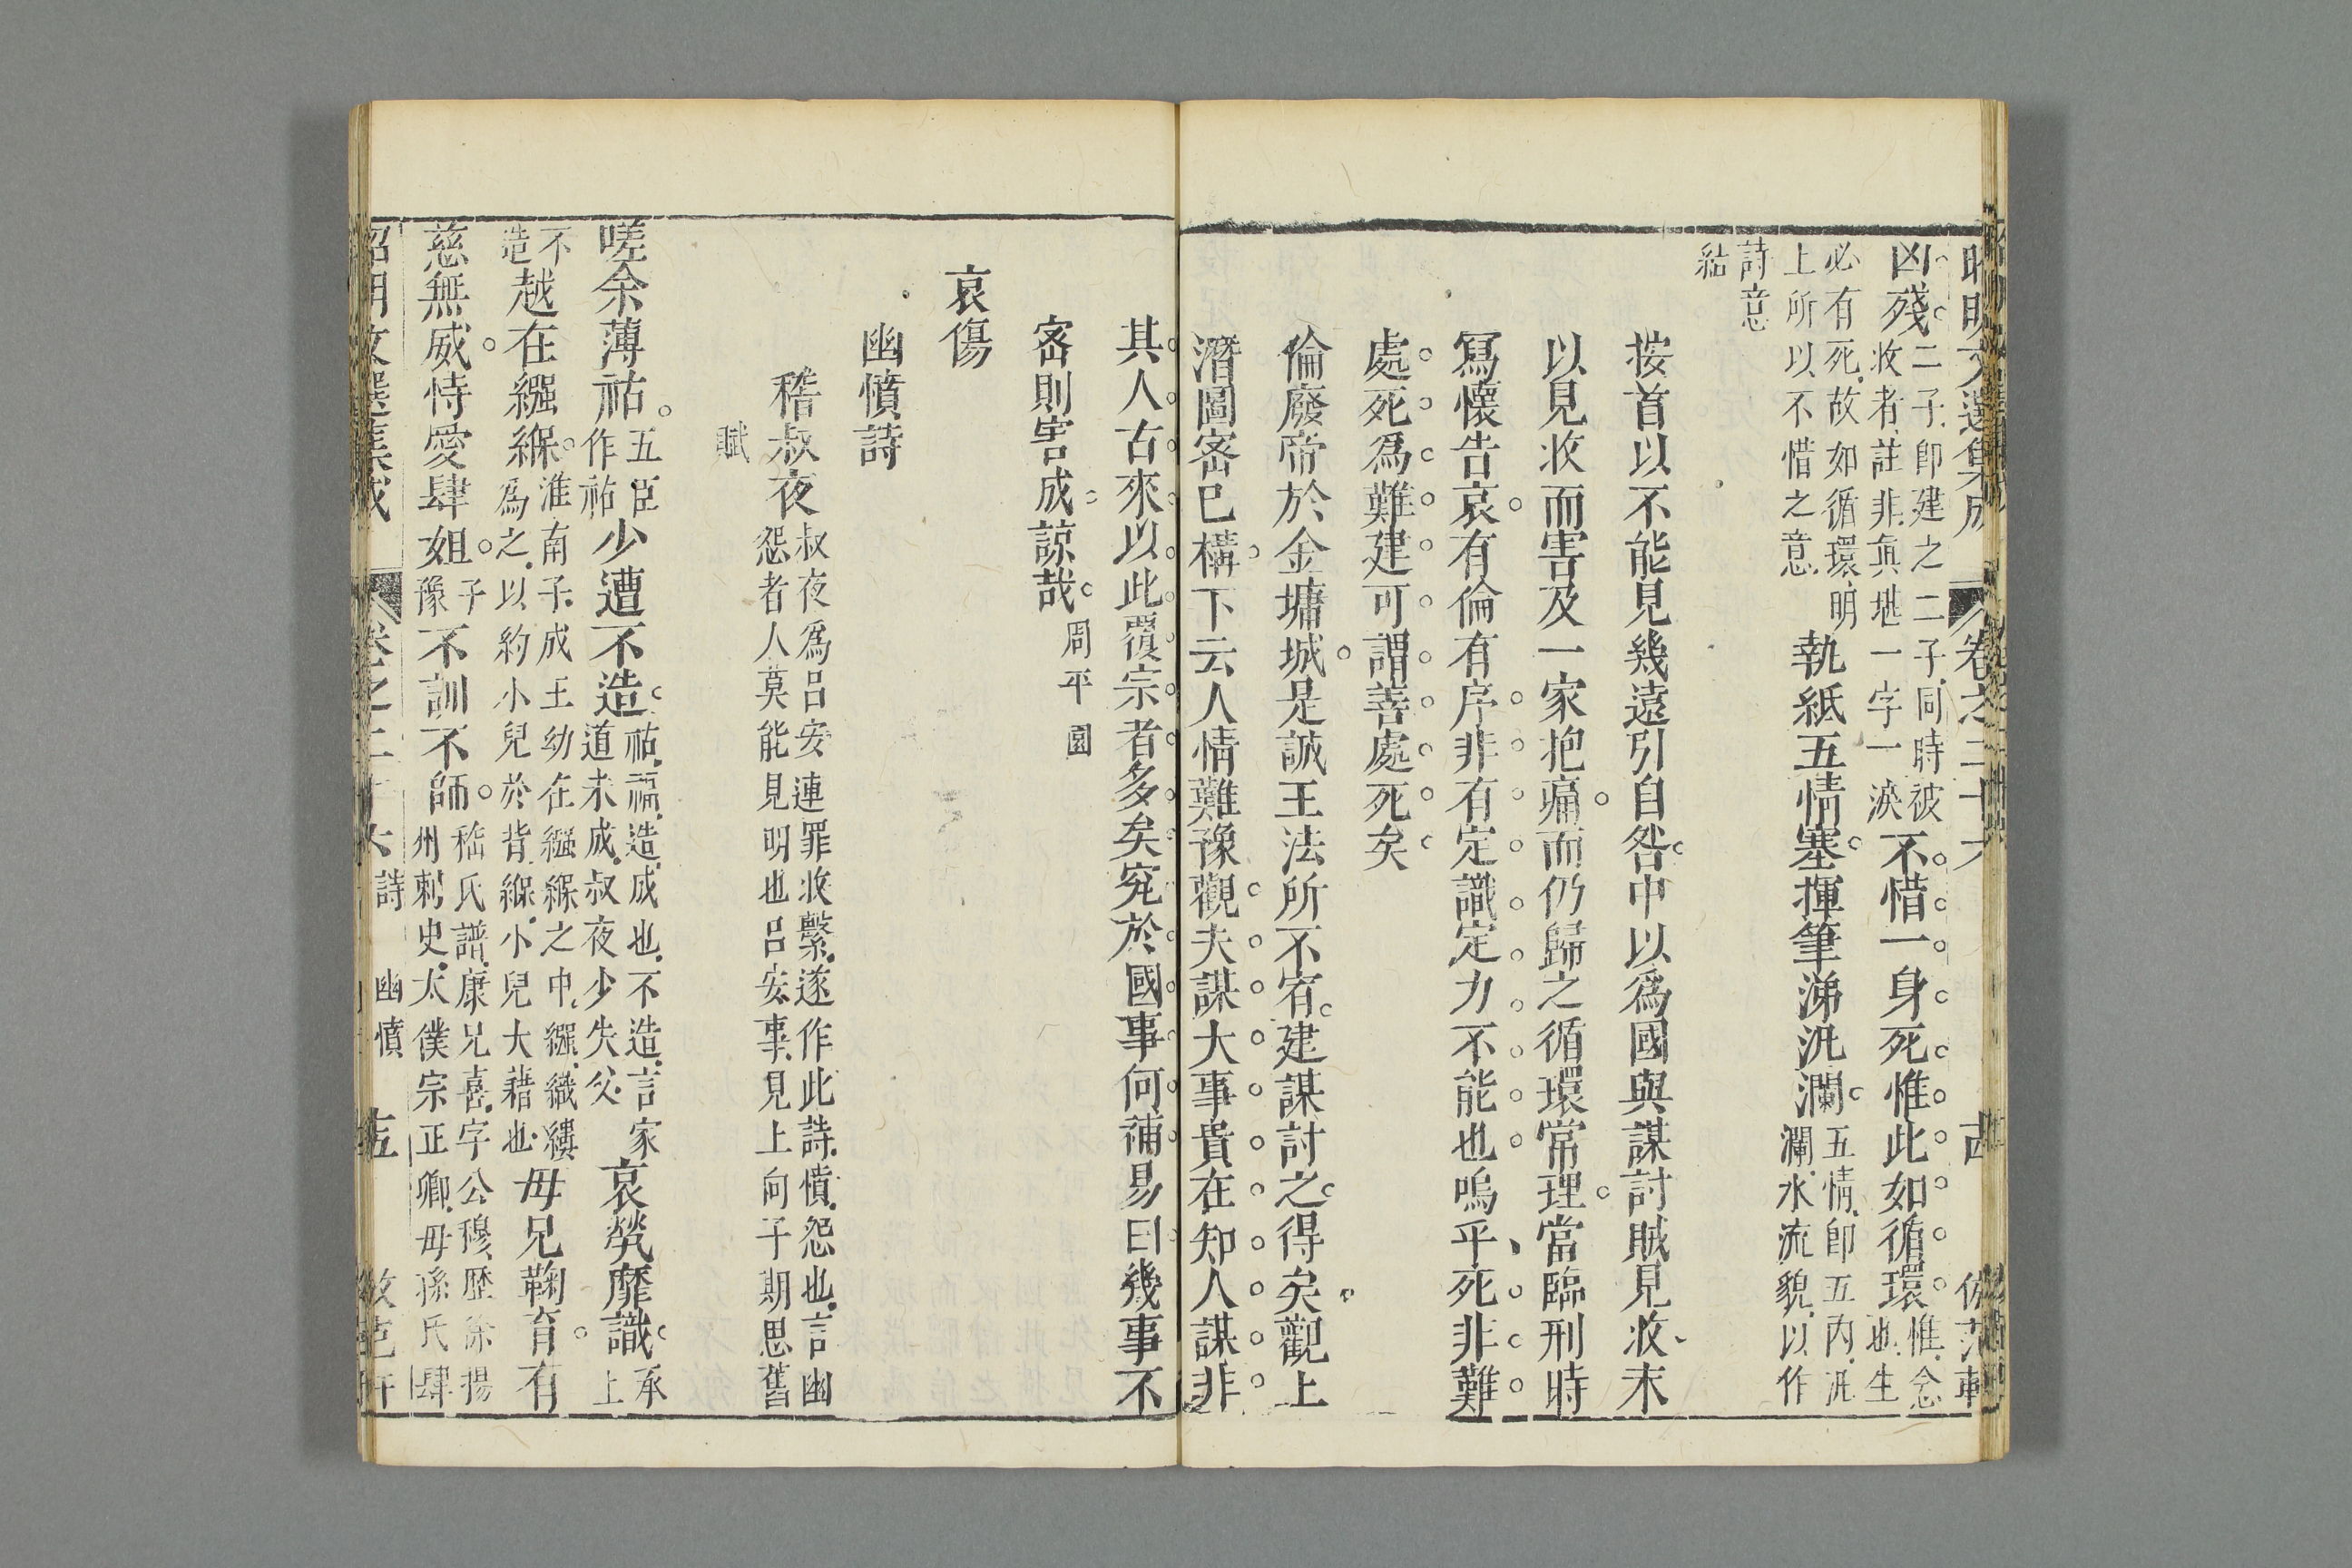 昭明文選集成 卷之二十六
凶殘二子卽建之二子同時被
收者註非眞堪一字一淚不惜一身死惟此如循環惟念
也生
必有死故如循環明
上所以不惜之意執紙五情塞揮筆涕汍瀾五情卽五內汍
瀾水流貌以作
詩意
結
按首以不能見幾遠引自咎中以爲國與謀討賊見收末
以見收而害及一家抱痛而仍歸之循環常理當臨刑時
寫懷告哀有倫有序非有定識定力不能也嗚乎死非難
處死爲難建可謂善處死矣
倫廢帝於金墉城是誠王法所不宥建謀討之得矣觀上
潛圖密已構下云人情難豫觀夫謀大事貴在知人謀非
其人古來以此覆宗者多矣究於國事何補易曰幾事不
密則害成諒哉周平園
哀傷
幽憤詩
嵇叔夜叔夜爲呂安連罪收繫遂作此詩憤怨也言幽
怨者人莫能見明也呂安事見上向子期思舊
賦
嗟余薄祜五臣
作祐少遭不造祜福造成也不造言家
道未成叔夜少失父哀煢靡識承
上
不
造越在繦緥淮南子成王幼在繦緥之中繦織縷
爲之以約小兒於背緥小兒大藉也母兄鞠育有
慈無威恃愛肆姐子
豫不訓不師嵇氏譜康兄喜字公穆歷徐揚
州刺史太僕宗正卿母孫氏肆
昭明文選集成 卷之二十六 詩 幽憤